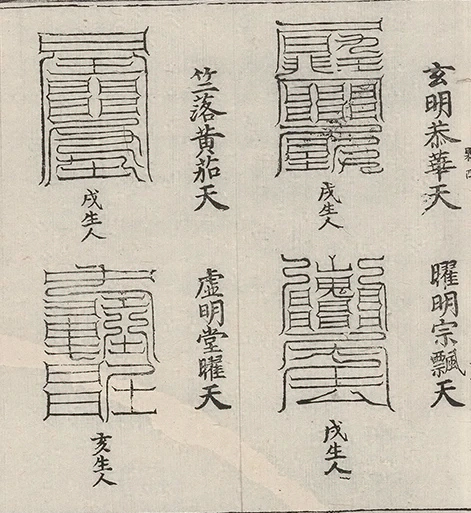 玄明恭華天
戌生人
竺落黄茄天
戌生人
曜明宗飄天
戌生人
虚明堂曜天
亥生人